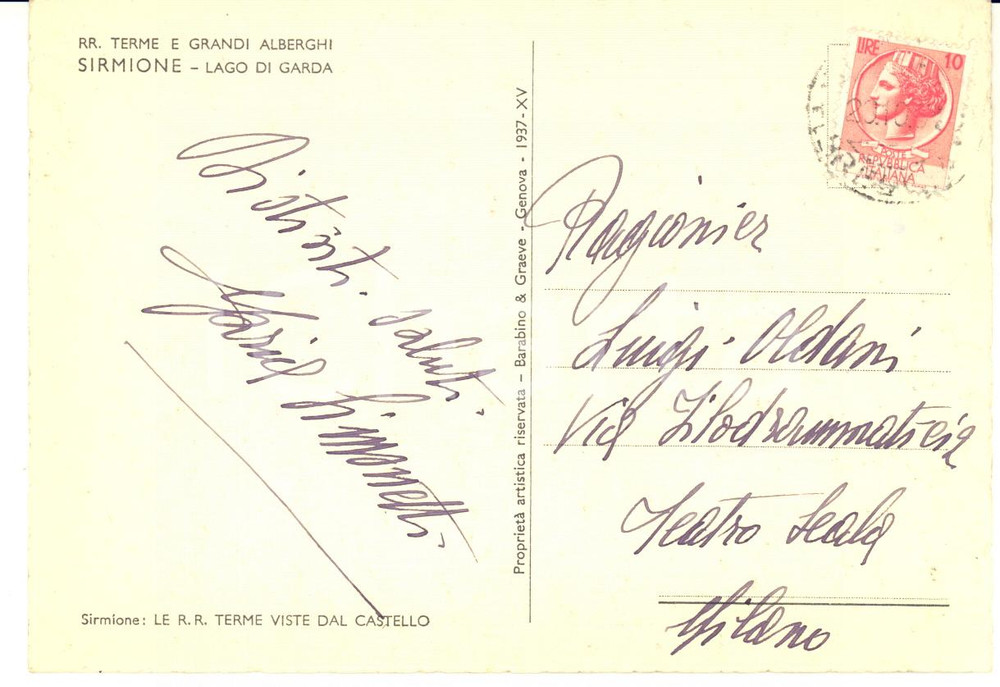 RR. TERME E GRANDI ALBERGHI
SIRMIONE – LAGO DI GARDA
Distinti. saluti.
Maria Simonetti.
Sirmione: LE R.R. TERME VISTE DAL CASTELLO
Proprietà artistica riservata – Barabino & Graeve - Genova - 1937-XV
LIRE 10
POSTE
REPVBBLICA
ITALIANA
Ragionier
Luigi Oldani
Via Filodrammatici 2
Teatro Scala
Milano